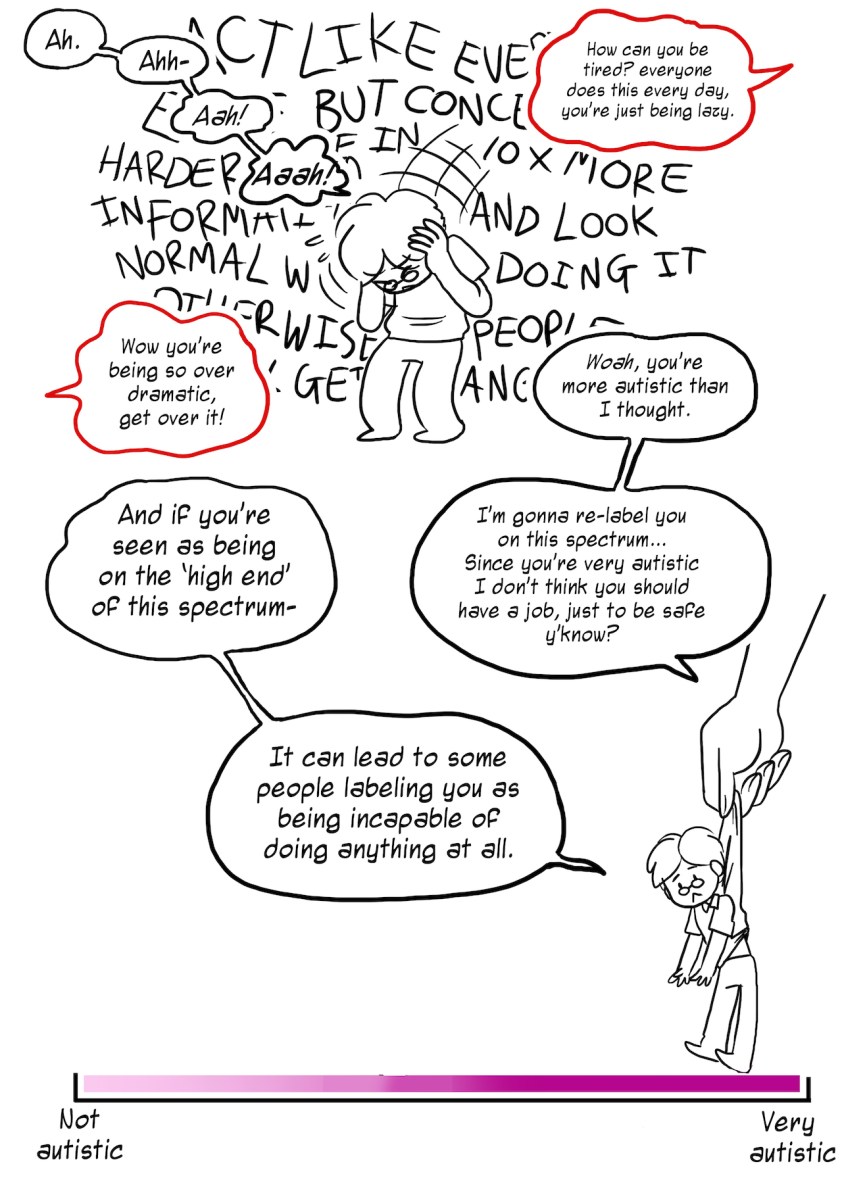 Ah.
Ahh-
Aah!
Aaah!
ACT LIKE
BUT
IN 10 X MORE
HARDER
AND LOOK
NORMAL DOING IT
How can you be
tired? everyone
does this every day,
you're just being lazy.
Wow you're
being so over
dramatic,
get over it!
Woah, you're
more autistic than
I thought.
I'm gonna re-label you
on this spectrum...
Since you're very autistic
I don't think you should
have a job, just to be safe
y'know?
And if you're
seen as being
on the 'high end'
of this spectrum-
It can lead to some
people labeling you as
being incapable of
doing anything at all.
Not
autistic
Very
autistic